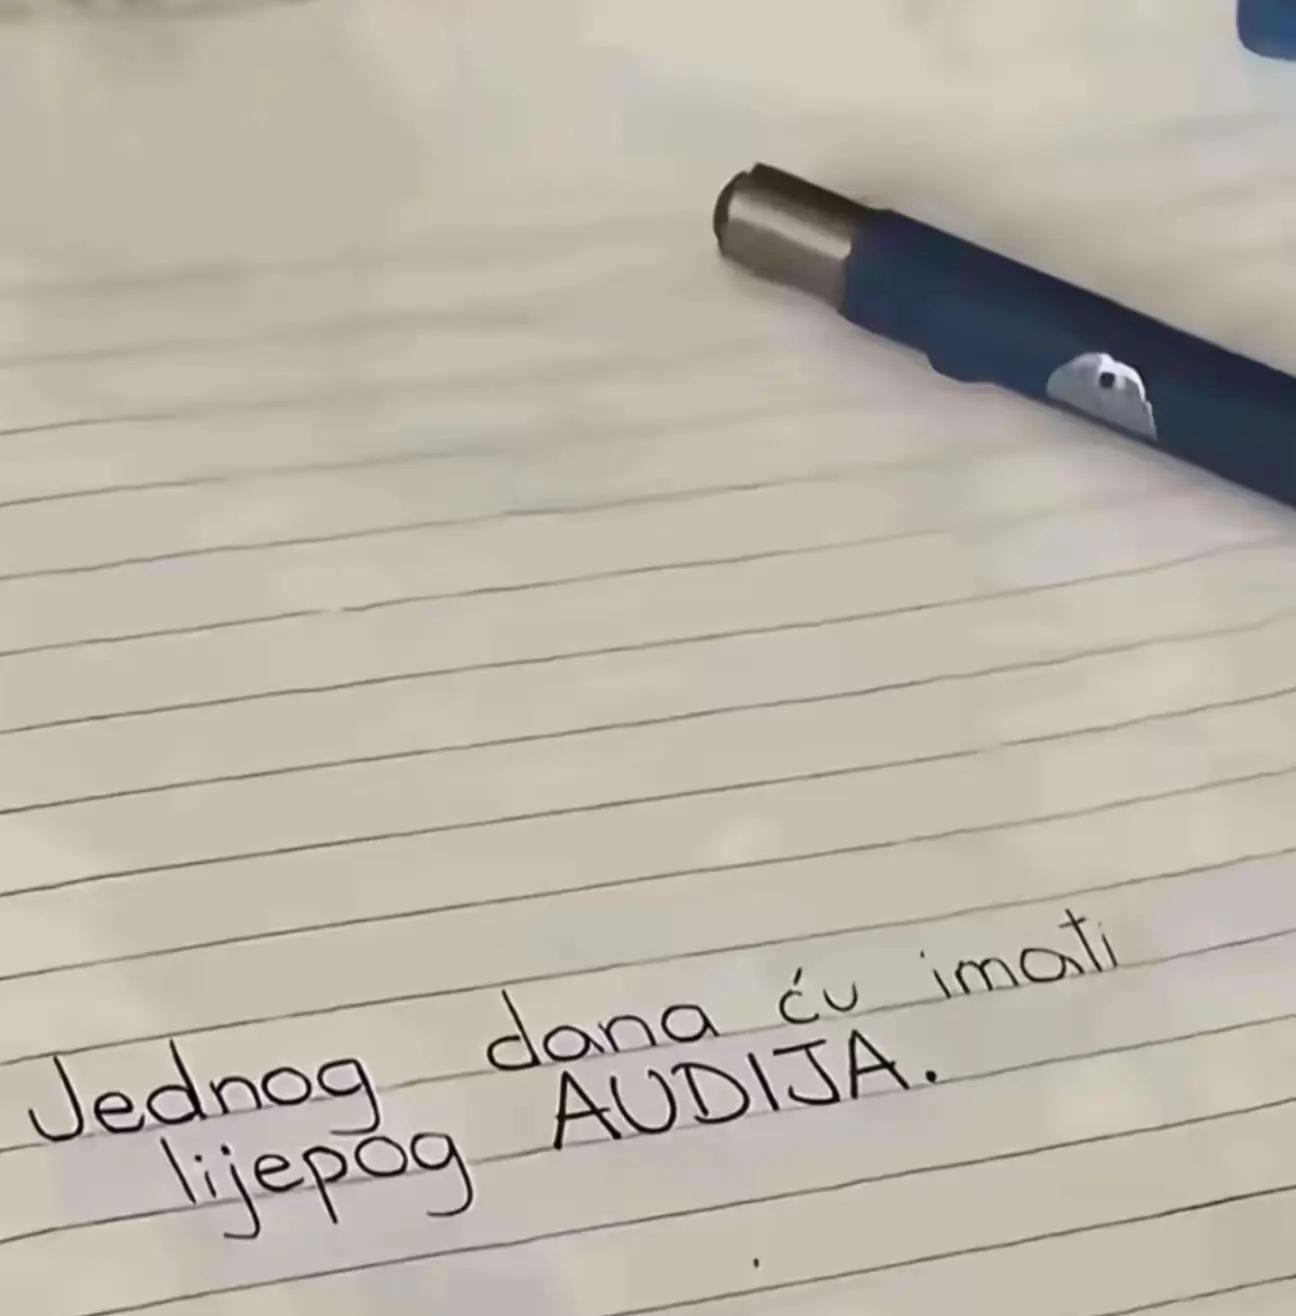 Jednog dana ću imati
lijepog AUDIJA.